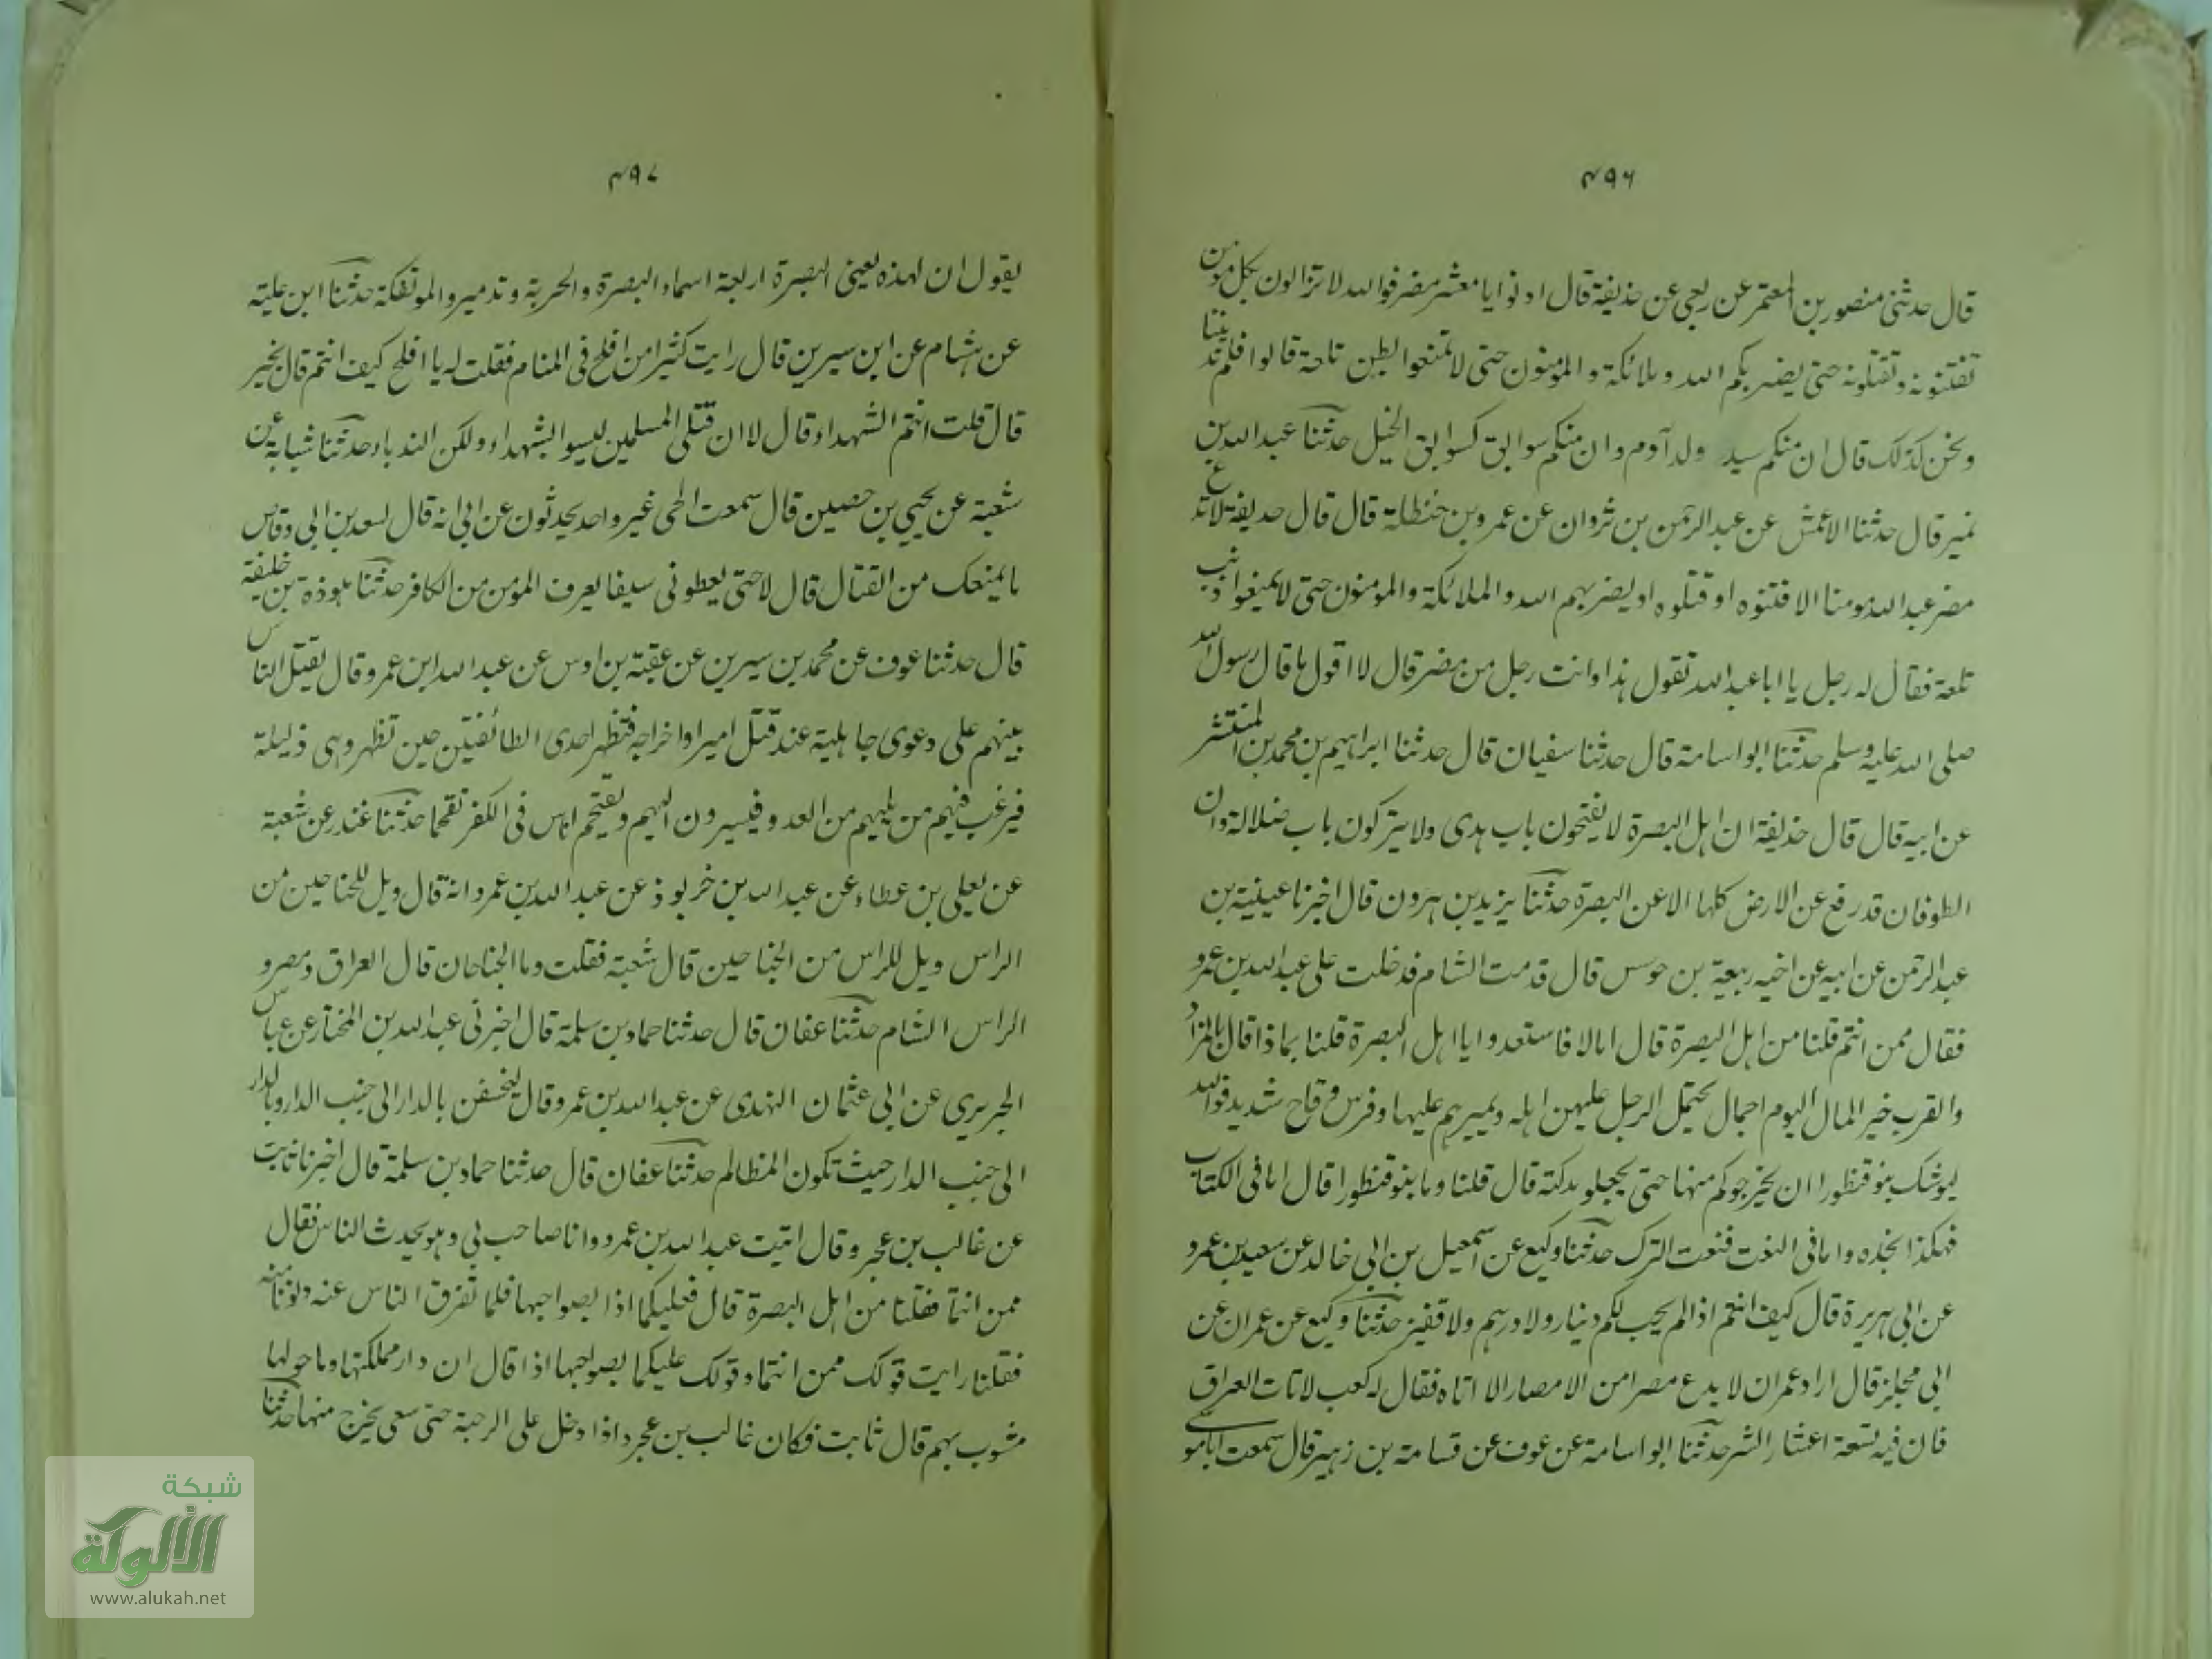 ٤٩٦
قال حدثنى منصور بن المعتمر عن ربعى عن حذيفة قال ادنوا يا معشر مضر فوالله لا تزالون بكل مومن
تفتنونه وتقتلونه حتى يضربكم الله وملائكة والمؤمنون حتى لا تمنعوا بطن تلعة قالوا فلم تدنينا
ونحن كذلك قال ان منكم سيد ولد آدم وان منكم سوابق كسوابق الخيل حدثنا عبد الله بن
نمير قال حدثنا الاعمش عن عبد الرحمن بن ثروان عن عمرو بن حنظلة قال قال حديفة لا تدع
مضر عبد الله مومنا الا فتنوه او قتلوه او يضربهم الله والملائكة والمومنون حتى لا يمنعوا ذنب
تلعة فقال له رجل يا ابا عبد الله تقول هذا وانت رجل من مضر قال لا اقول ما قال رسول الله
صلى الله عليه وسلم حدثنا ابو اسامة قال حدثنا سفيان قال حدثنا ابراهيم بن محمد بن المنتشر
عن ابيه قال قال حذيفة ان اهل البصرة لا يفتحون باب هدى ولا يتركون باب ضلالة وان
الطوفان قد رفع عن الارض كلها الا عن البصرة حدثنا يزيد بن هرون قال اخبرنا عيينة بن
عبد الرحمن عن ابيه عن اخيه ربيعة بن حوس قال قدمت الشام فدخلت على عبد الله بن عمرو
فقال ممن انتم قلنا من اهل البصرة قال امالا فاستعدوا يا اهل البصرة قلنا بماذا قال بالمزاد
والقرب خير المال اليوم اجمال يحتمل الرجل عليهن اهله ويميرهم عليها وفرس وقاح شديد فوالله
ليوشك بنو قنطورا ان يخرجوكم منها حتى يجعلو بدكته قال قلنا وما بنو قنطورا قال اما فى الكتاب
فهكذا نجده واما فى النعت فنعت الترك حدثنا وكيع عن اسمعيل بن ابى خالد عن سعيد بن عمرو
عن ابى هريرة قال كيف انتم اذا لم يجب لكم دينار ولا درهم ولا قفيز حدثنا وكيع عن عمران عن
ابى مجلز قال اراد عمر ان لا يدع مصرا من الامصار الا اتاه فقال له كعب لا تات العراق
فان فيه تسعة اعشار الشر حدثنا ابو اسامة عن عوف عن قسامة بن زهير قال سمعت ابا موسى
٤٩٧
يقول ان لهذه يعنى البصرة اربعة اسماء البصرة والخريبة وتدمير والموتفكة حدثنا ابن علية
عن هشام عن ابن سيرين قال رايت كثير امن افلح فى المنام فقلت له يا افلح كيف انتم قال بخير
قال قلت انتم الشهداء قال لا ان قتلى المسلمين ليسوا بشهداء ولكن الندباء حدثنا شبابة عن
شعبة عن يحيى بن حصين قال سمعت الحى غير واحد يحدثون عن ابى انه قال لسعد بن ابى وقاص
ما يمنعك من القتال قال لا حتى يعطونى سيفا يعرف المؤمن من الكافر حدثنا هوذة بن خليفة
قال حدثنا عوف عن محمد بن سيرين عن عقبة بن اوس عن عبد الله ابن عمرو قال يقتتل الناس
بينهم على دعوى جاهلية عند قتل امير او اخراجه فتظهر احدى الطائفتين حين تظهر وهى ذليلة
فيرغب فيهم من يليهم من العدو فيسيرون اليهم ويقتحم اناس فى الكفر تقحما حدثنا غندر عن شعبة
عن يعلى بن عطاء عن عبد الله بن خربوذ عن عبد الله بن عمرو انه قال ويل للجناحين من
الراس ويل للراس من الجناحين قال شعبة فقلت وما الجناحان قال العراق ومصر و
الراس الشام حدثنا عفان قال حدثنا حماد بن سلمة قال اخبرنى عبد الله بن المختار عن عباس
الجريرى عن ابى عثمان النهدى عن عبد الله بن عمرو قال ليخسفن بالدار الى جنب الدار وبالدار
الى جنب الدار حيث تكون المظالم حدثنا عفان قال حدثنا حماد بن سلمة قال اخبرنا ثابت
عن غالب بن عجرد قال اتيت عبد الله بن عمرو وانا صاحب لى وهو يحدث الناس فقال
ممن انتما فقلنا من اهل البصرة قال فعليكما اذا بضواحيها فلما تفرق الناس عنه دنونا منه
فقلنا رايت قولك ممن انتما وقولك عليكما بضواحيها اذا قال ان دار مملكتها وما حولها
مشوب بهم قال ثابت فكان غالب بن عجرد اذا دخل على الرحبة حتى سعى يخرج منها حدثنا
شبكة
الألوكة
www.alukah.net